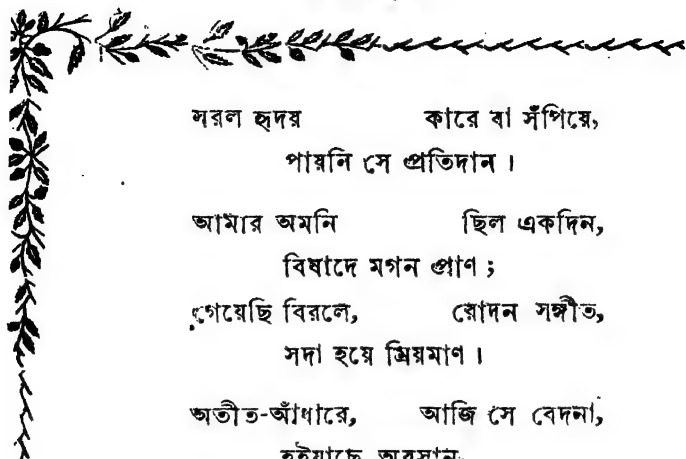 সরল হৃদয় কারে বা সঁপিয়ে,
পায়নি সে প্রতিদান।
আমার অমনি ছিল একদিন,
বিষাদে মগন প্রাণ;
গেয়েছি বিরলে, রোদন সঙ্গীত,
সদা হয়ে ম্রিয়মাণ।
অতীত-আঁধারে, আজি সে বেদনা,
হইয়াছে অবসান,